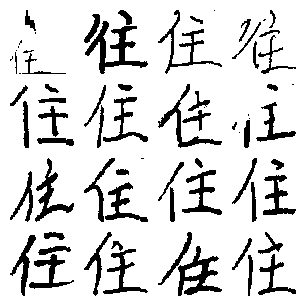 住住住住
住住住住
住住住住
住住住住